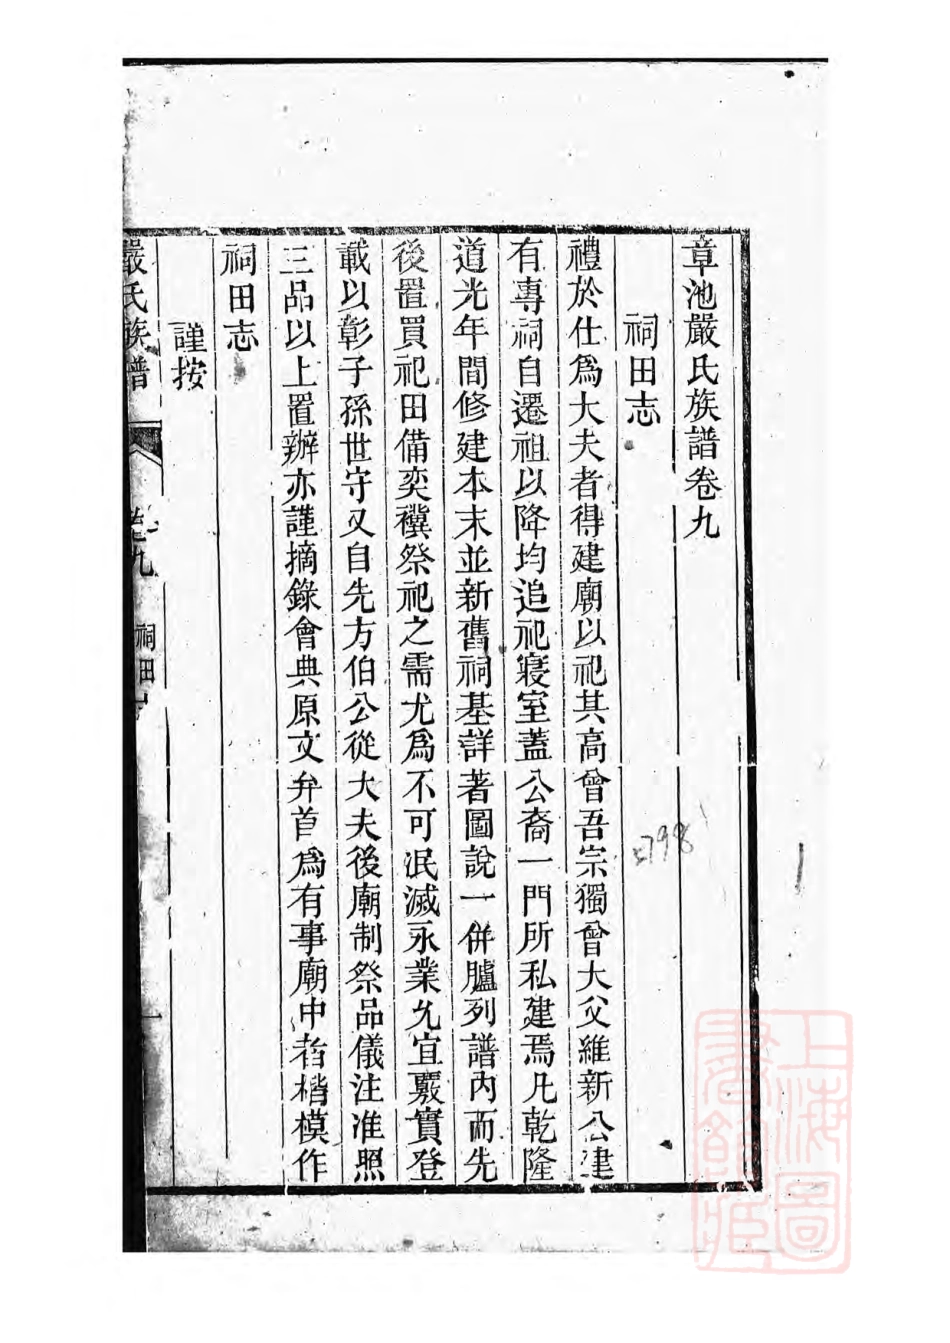 章池嚴氏族譜卷九
祠田志
禮於仕爲大夫者得建廟以祀其高曾吾宗獨曾大父維新公建
有專祠自遷祖以降均追祀寢室蓋公裔一門所私建焉凡乾隆
道光年間修建本末並新舊祠基詳著圖說一併臚列譜內而先
後置買祀田備奕禩祭祀之需尤爲不可泯滅永業允宜覈實登
載以彰子孫世守又自先方伯公從大夫後廟制祭品儀注准照
三品以上置辦亦謹摘錄會典原文弁首爲有事廟中者楷模作
祠田志
謹按
嚴氏族譜
卷九
祠田志
一
798
上海圖書館藏